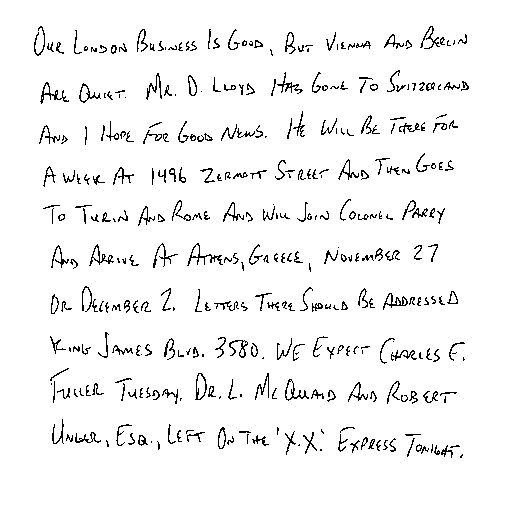 Our London Business Is Good, But Vienna And Berlin
Are Quiet. Mr. D. Lloyd Has Gone To Switzerland
And I Hope For Good News. He Will Be There For
A Week At 1496 Zermott Street And Then Goes
To Turin And Rome And Will Join Colonel Parry
And Arrive At Athens, Greece, November 27
Or December 2. Letters There Should Be Addressed
King James Blvd. 3580. We Expect Charles E.
Fuller Tuesday. Dr. L. McQuaid And Robert
Unger, Esq., Left On The 'X.X.' Express Tonight.